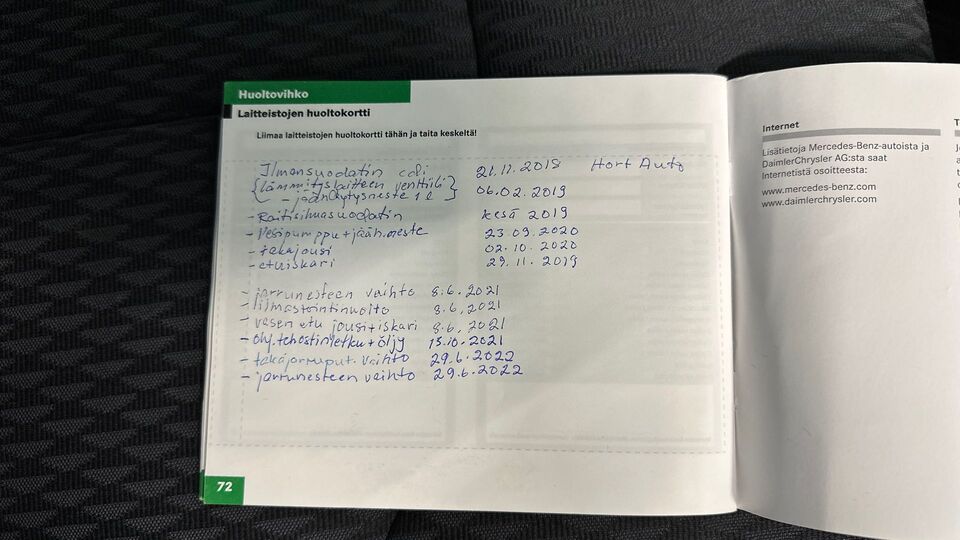 Huoltovihko
Laitteistojen huoltokortti
Liimaa laitteistojen huoltokortti tähän ja taita keskeltä!
Ilmansuodatin 21.11.2018 Hort Auto
{Lämmityslaitteen venttiili 06.02.2019
- jäähdytysneste 1 l}
- Raitisilmasuodatin kesä 2019
- Vesipumppu + jääh.neste 23.09.2020
- takajousi 02.10.2020
- etuiskari 29.11.2019
- jarrunesteen vaihto 8.6.2021
- ilmastointihuolto 8.6.2021
- vasen etu jousi+iskari 8.6.2021
- ohj.tehostinletku + öljy 15.10.2021
- takajarruput. vaihto 29.6.2022
- jarrunesteen vaihto 29.6.2022
72
Internet
Lisätietoja Mercedes-Benz-autoista ja
DaimlerChrysler AG:sta saat
Internetistä osoitteesta:
www.mercedes-benz.com
www.daimlerchrysler.com